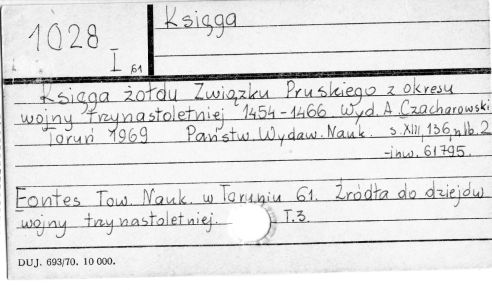 Księga
1028
I 61
Księga żołdu Związku Pruskiego z okresu
wojny trzynastoletniej 1454-1466. Wyd. A. Czacharowski
Toruń 1969 Państw. Wydaw. Nauk. s. XIII, 136, nlb. 2
-inw. 61795.
Fontes Tow. Nauk. w Toruniu 61. Źródła do dziejów
wojny trzynastoletniej. T. 3.
DUJ. 693/70. 10 000.